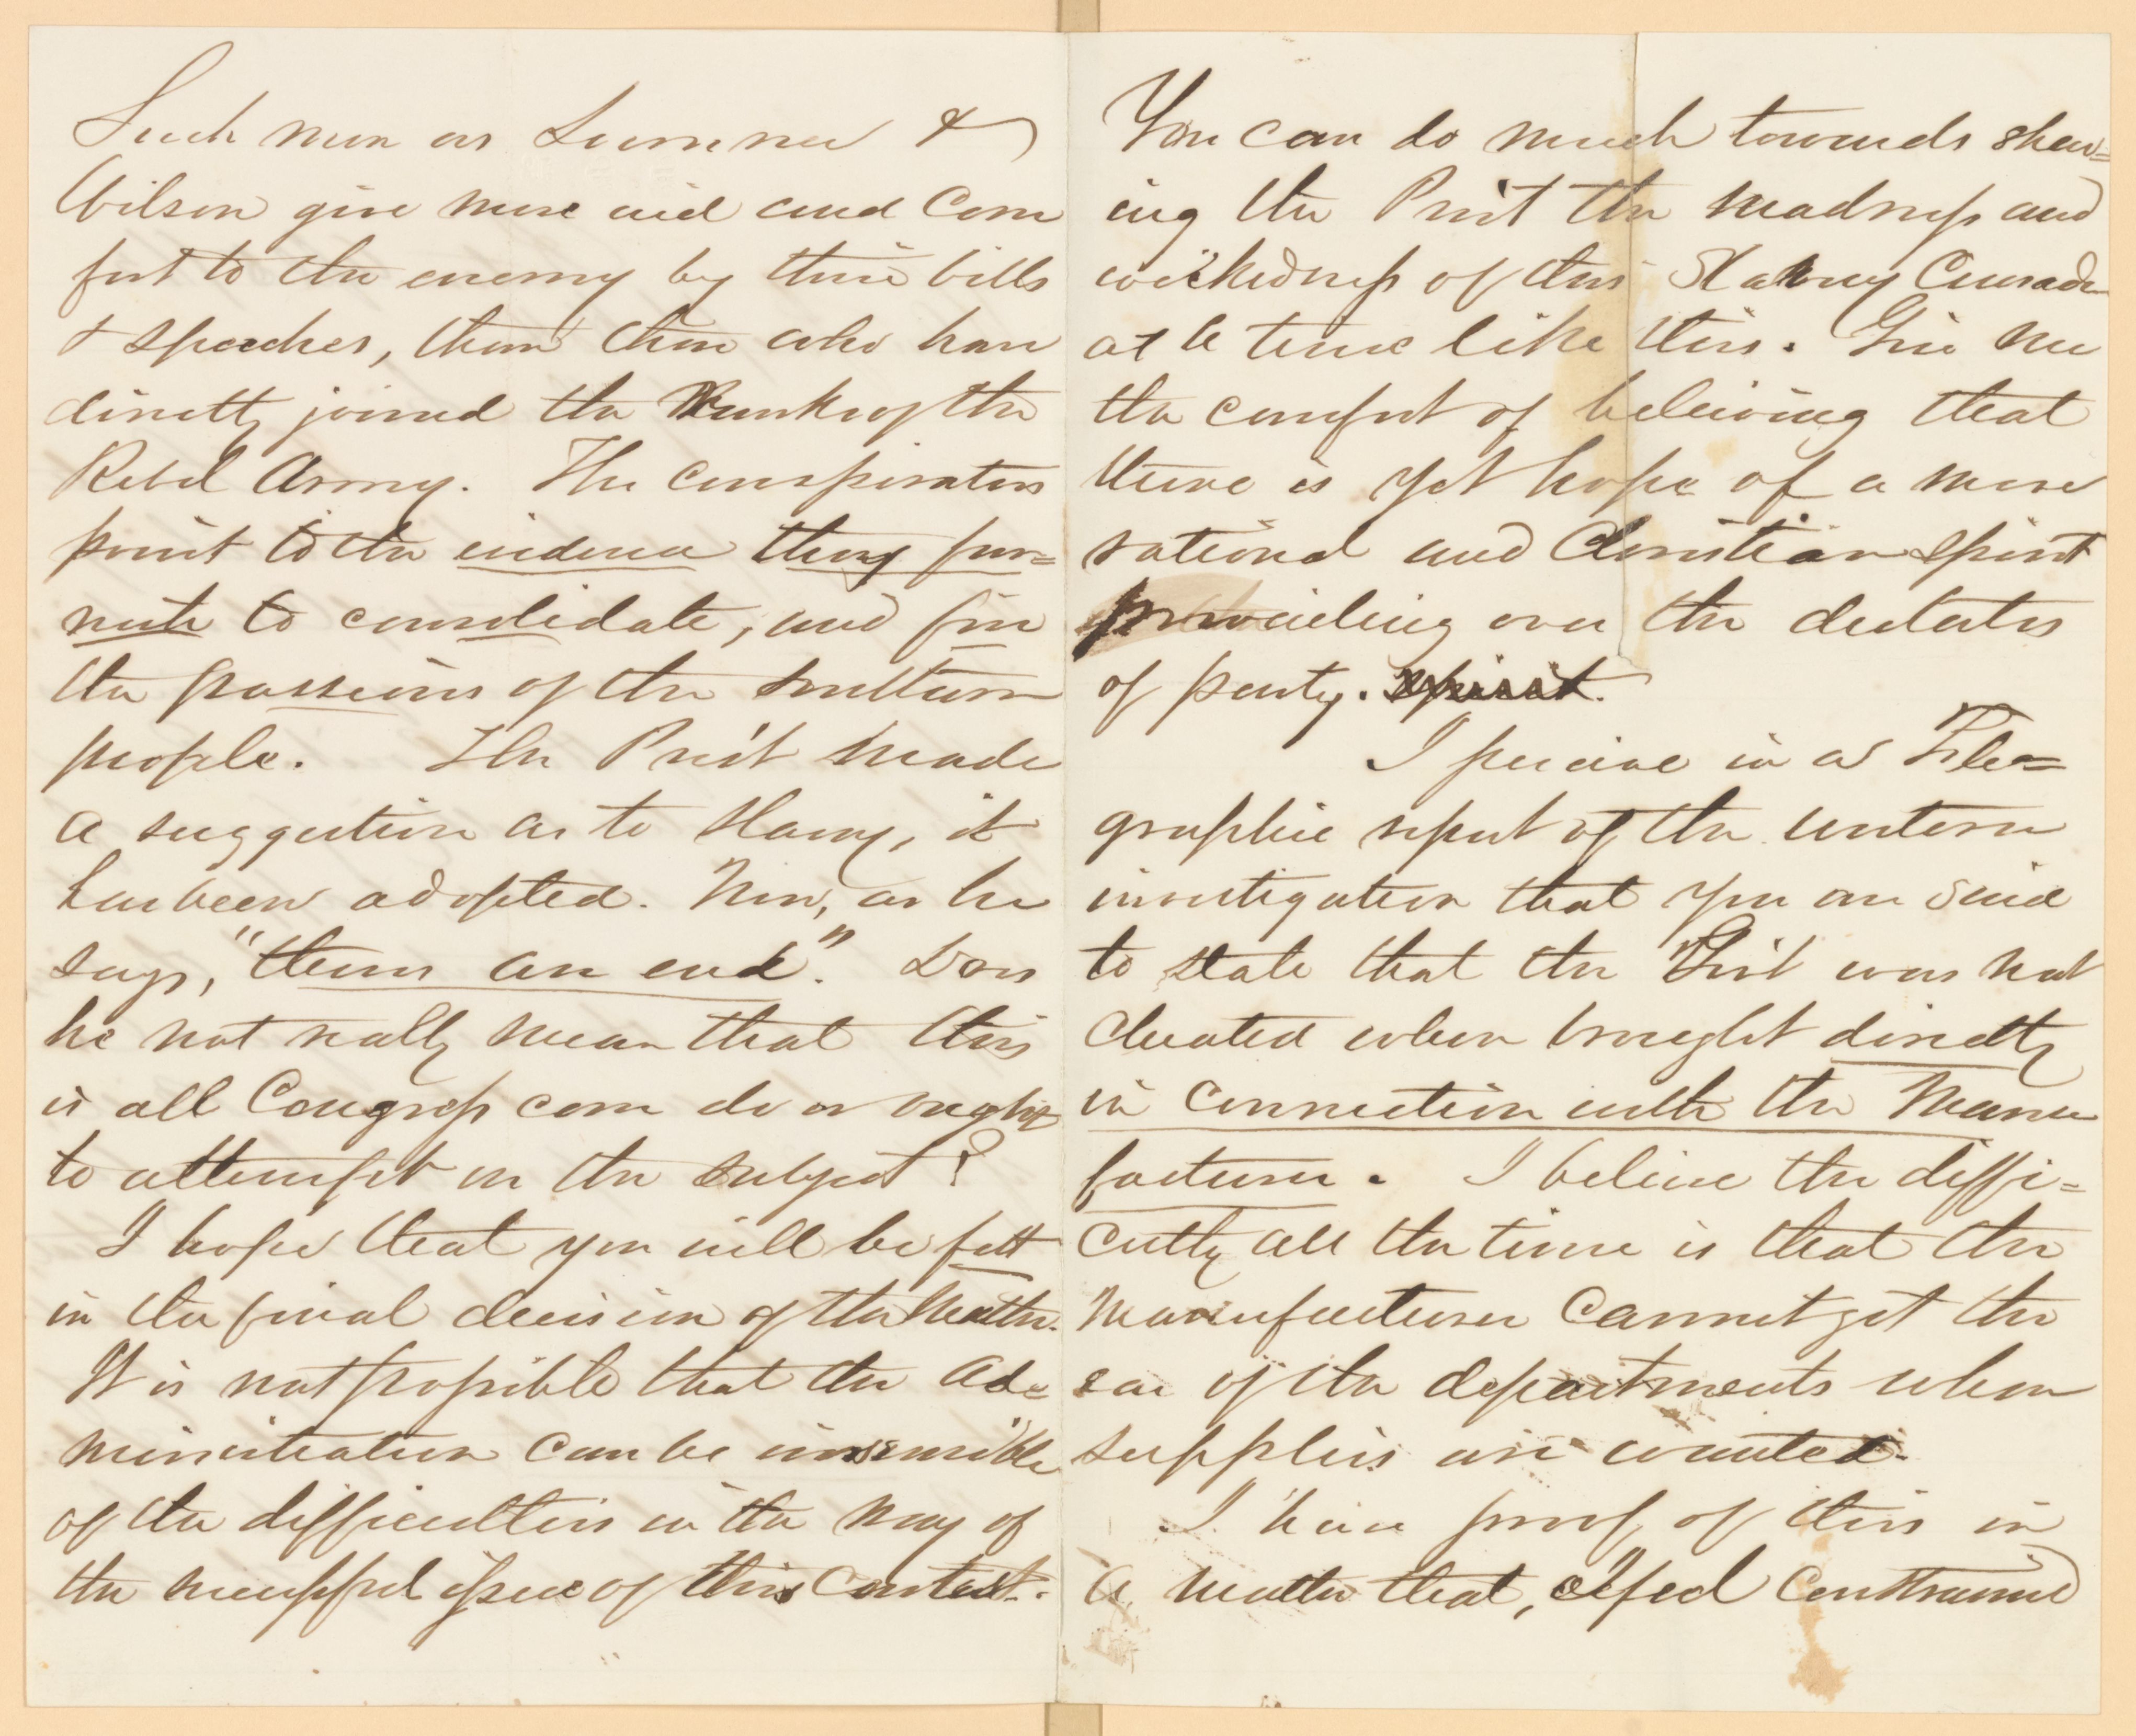 Such men as Sumner &
Wilson give more aid and Com
fort to the enemy by their bills
& speeches, than those who have
directly joined the Ranks of the
Rebel Army. The conspirators
point to the evidence they fur=
nish to consolidate, and fire
the passions of the southern
people. The Presit made
a suggestion as to Slavery, it
has been adopted. Now, as he
says, "theres an end". Does
he not really mean that this
is all Congress can do or ought
to attempt on the subject?
I hope that you will be felt
in the final decision of the Matter.
It is not possible that the Ad=
ministration can be insensible
of the difficulties in the way of
the successful issue of this Contest.
You can do much towards shew=
ing the Presit the madness and
wickedness of this Slavery Crusade
at a time like this. Give me
the comfort of believing that
there is yet hope of a more
rational and Christian spirit
prevailing over the dictates
of party. spirit.
I perceive in a Tele=
graphic report of the
investigation that you are said
to state that the Govt was not
cheated when brought directly
in connection with the Manu
facturer. I believe the diffi=
culty all the time is that the
Manufacturer Cannot get the
ear of the departments when
supplies are wanted.
I have proof of this in
a matter that, I feel Constrained